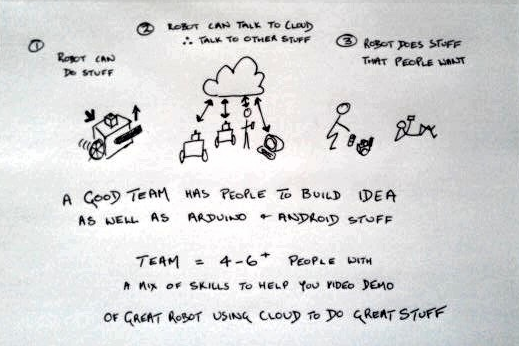 ① ROBOT CAN
DO STUFF
② ROBOT CAN TALK TO CLOUD
∴ TALK TO OTHER STUFF
③ ROBOT DOES STUFF
THAT PEOPLE WANT
A GOOD TEAM HAS PEOPLE TO BUILD IDEA
AS WELL AS ARDUINO + ANDROID STUFF
TEAM = 4-6+ PEOPLE WITH
A MIX OF SKILLS TO HELP YOU VIDEO DEMO
OF GREAT ROBOT USING CLOUD TO DO GREAT STUFF